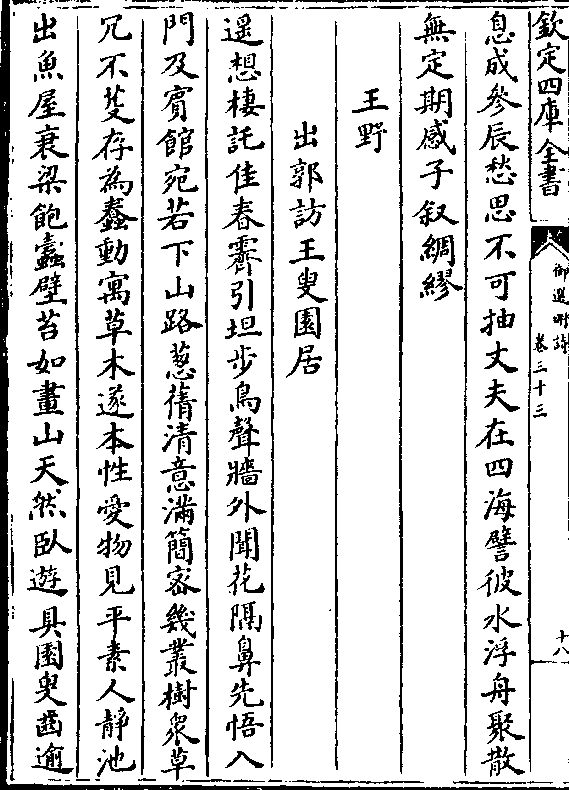 欽定四庫全書
御選明詩
卷三十三
十八
息成參辰愁思不可抽丈夫在四海譬彼水浮舟聚散
無定期感子叙綢繆
王野
出郭訪王叟園居
遥想棲託佳春霽引坦步鳥聲牆外聞花隔鼻先悟入
門及賓館宛若下山路葱蒨清意滿簡宻幾叢樹衆草
冗不芟存為蠢動寓草木遂本性愛物見平素人靜池
出魚屋衰梁飽蠧壁苔如畫山天然臥遊具園叟齒逾